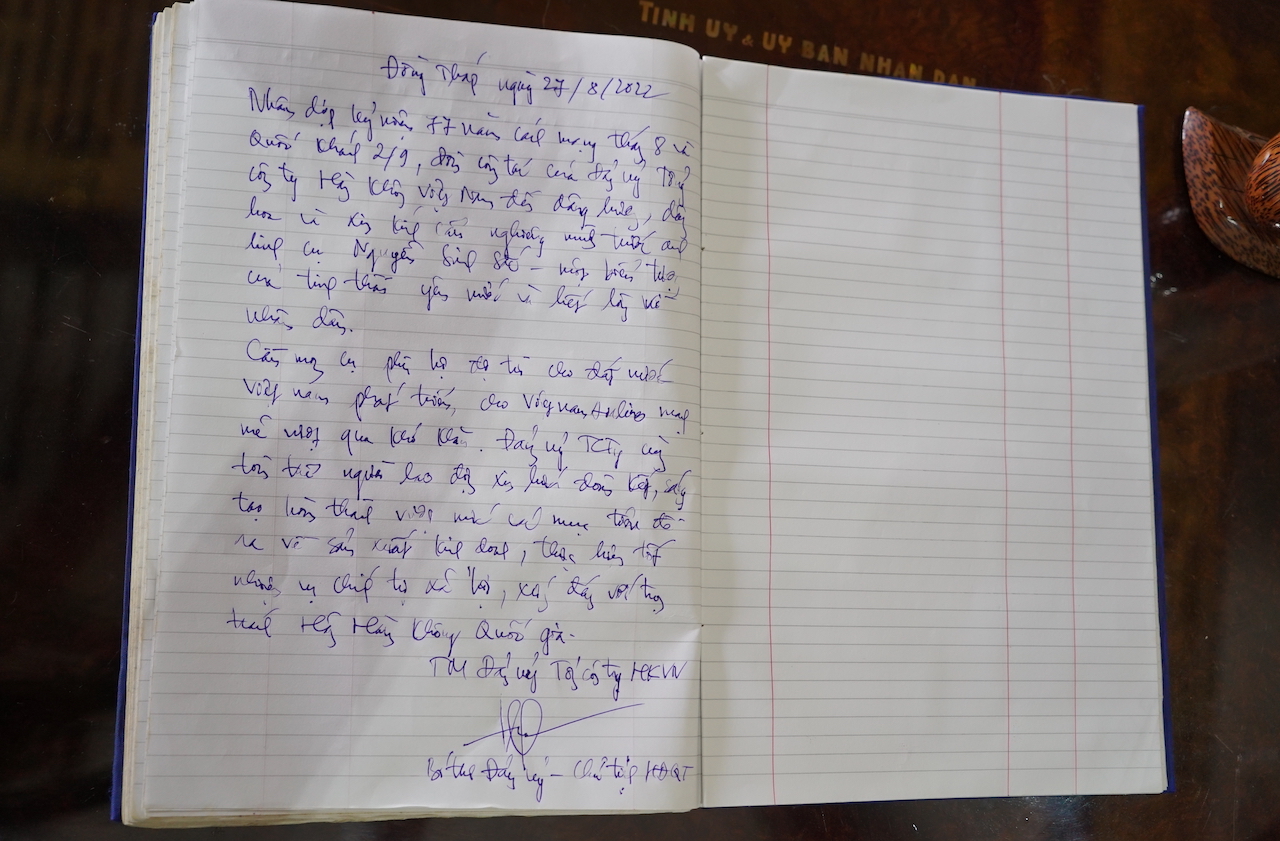 TỈNH ỦY & ỦY BAN NHÂN DÂN
Đồng Tháp ngày 27/8/2022
Nhân dịp kỷ niệm 77 năm cách mạng tháng 8 và
Quốc khánh 2/9, đoàn công tác của Đảng ủy Tổng
công ty Hàng không Việt Nam đến dâng hương, dâng
hoa và xin kính cẩn nghiêng mình trước anh
linh cụ Nguyễn Sinh Sắc – một biểu tượng
của tinh thần yêu nước và hết lòng vì
nhân dân.
Cầu mong cụ phù hộ độ trì cho đất nước
Việt nam phát triển, cho Vietnam Airlines mạnh
mẽ vượt qua khó khăn. Đảng ủy TCTy cùng
toàn thể người lao động xin hứa đoàn kết, sáng
tạo hoàn thành vượt mức các mục tiêu đề
ra về sản xuất kinh doanh, thực hiện tốt
nhiệm vụ chính trị xã hội, xứng đáng với trọng
trách Hãng Hàng Không Quốc gia.
TM Đảng uỷ Tổng công ty HKVN
Bí thư Đảng uỷ – Chủ tịch HĐQT